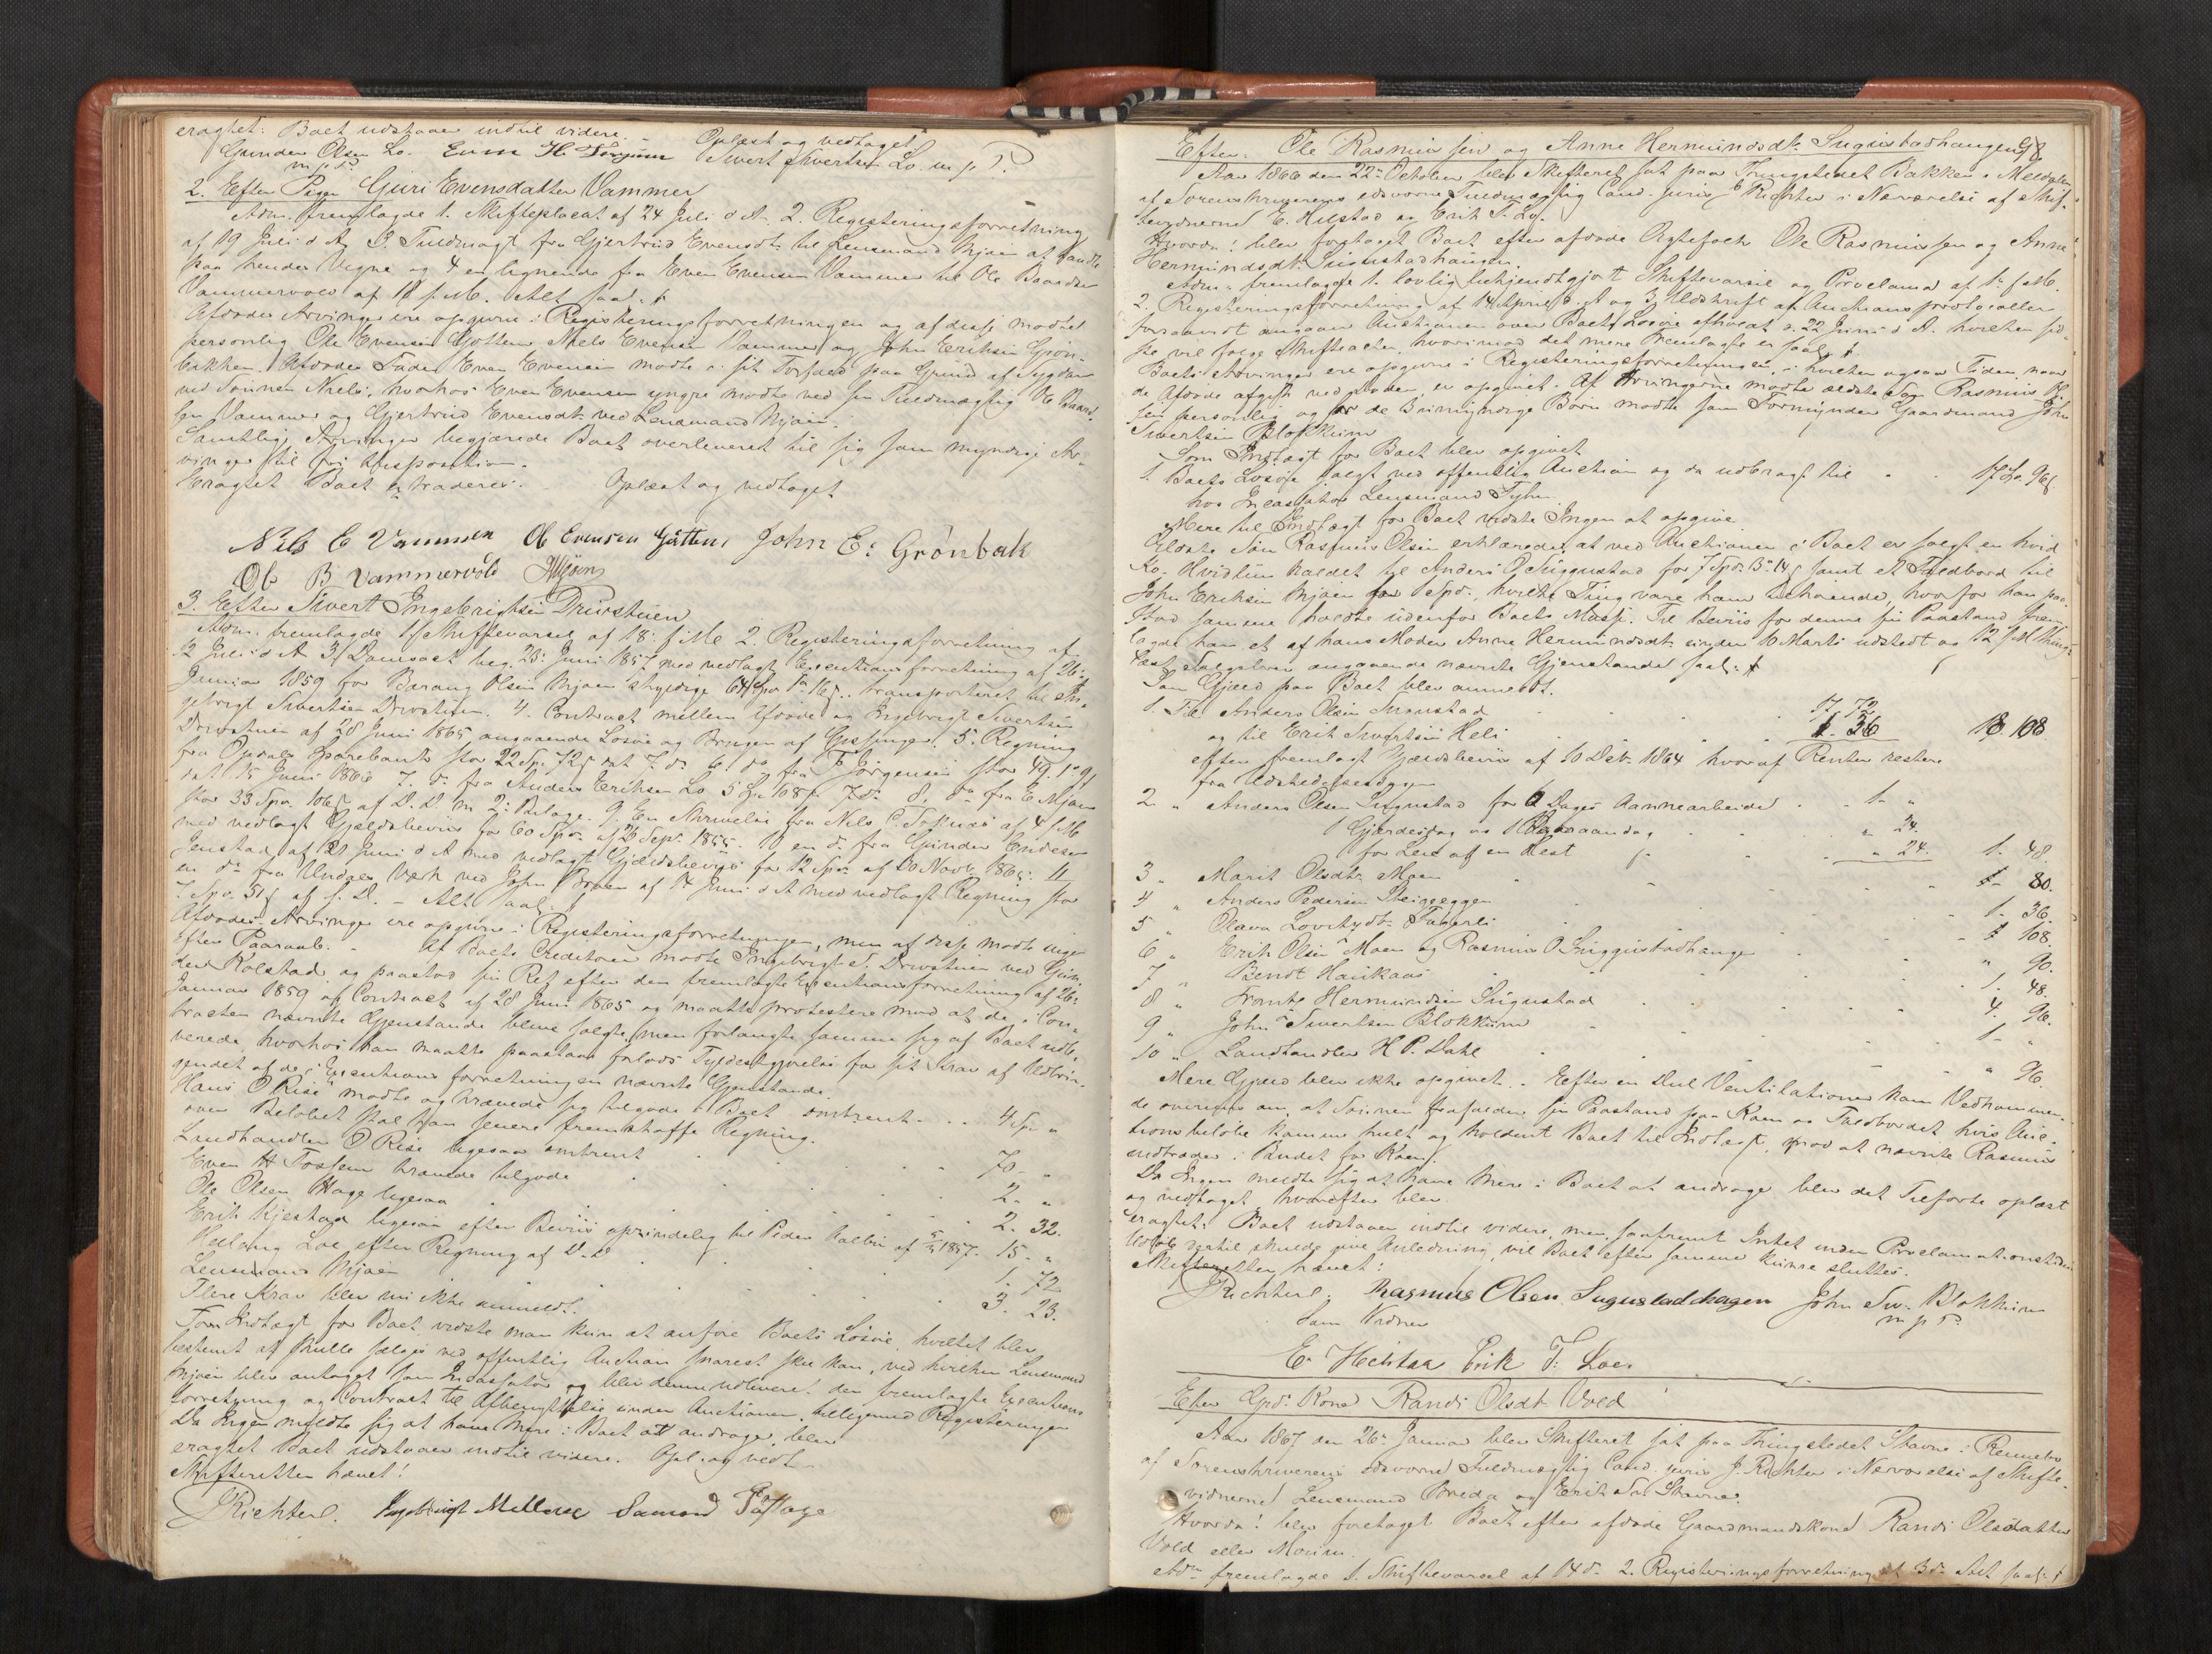 eragtet: Boet udstaaer indtil videre. - Oplæst og vedtaget
Gunder Olsen Lo. Even H. Sivert Sivertsen Lo. m. p. P.
m. p. P.
2. Efter Pigen Guri Evensdatter Vammer
Adm. fremlagde 1. Skifteplacat af 24 Juli d. A. 2. Registeringsforretning
af 19 Juli d. A. 3. Fuldmagt fra Gjertrud Evensdt. til Lensmand Mjøen at handle
paa hendes Vegne og 4 en lignende fra Even Evensen Vammer til Ole Baardsen
Vammervold af 18 f. M. Alt saal.
Afdødes Arvinger ere opgivne i Registeringsforretningen og af disse mødte
personlig Ole Evensen Gotten Niels Evensen Vammer og John Eriksen Grøn-
bakken. Afdødes Fader Even Evensen mødte i sit Forfald paa Grund af Sygdom
ved Sønnen Niels, hvorhos Even Evensen yngre mødte ved sin Fuldmægtig Ole Baard-
sen Vammer og Gjertrud Evensdt. ved Lensmand Mjøen.
Samtlige Arvinger begjærede Boet overleveret til sig som myndige Ar-
vinger til fri Disposition.
Eragtet Boet extraderes. Oplæst og vedtaget
Nils E Vammer Ole Evensen Gotten John E: Grönbak
Ole B Vammervold Mjøen
3. Efter Sivert Ingebrigtsen Drivstuen
Adm. fremlagde 1) Skiftevarsel af 18. f. M. 2. Registeringsforretning af
12 Juli d. A. 3) Domsact beg. 23. Juni 1857 med vedlagt Executionsforretning af 26.
Januar 1859 for Baraug Olsen Mjøen skyldige 64 Spd. transporteret til In-
gebrigt Sivertsen Drivstuen. 4. Contract mellem Afdøde og Ingebrigt Sivertsen
Drivstuen af 28 Juni 1865 angaaende Løsøre og Brugen af 5. Regning
fra Opdals Sparebank stor 22 Sp. 72 s 6. do. fra P. Jørgensen stor
dat. 15 Juni 1866 7. do. fra Anders Eriksen Lo 5 Sp. 108 s 8. do. fra E. Mjøen
stor 33 Spd. 106 s af D. D. m 2 Bilage. 9. En Skrivelse fra Nils C. af 4 f. M.
med vedlagt Gjældsbevis for 60 Spd. af 26 Sept. 1855. 10 en do. fra Gunder Endresen
Jenstad af 21 Juni d. A. med vedlagt Gjældsbeviis for 12 Spd. af 20 Novb. 1865. 11
en do. fra Undals Værk ved John af 14 Juni d. A. med vedlagt Regning stor
7 Spd. 51 s af s. D. - Alt saal.
Afdødes Arvinger ere opgivne i Registeringsforretningen, men af disse mødte ingen
efter Paaraab. - Af Boets Creditorer mødte Ingebrigt S. Drivstuen ved Gun-
der Kolstad og paastod sin Ret efter den fremlagte Executionsforretning af 26.
Januar 1859 og Contract af 28 Juni 1865 og maatte protestere mod at de i Con-
tracten nævnte Gjenstande bleve solgte, men forlangte samme sig af Boet udle-
verede, hvorhos han maatte paastaae forlods Fyldestgjørelse for sit Krav af Udbrin-
gendet af de i Executionsforretningen nævnte Gjenstande.
Hans O Rise mødte og krævede sig tilgode i Boet omtrent - . . 4 Sp. "
over Beløbet skal han senere fremskaffe Regning.
Landhandler O Rise ligesaa omtrent 70 - "
Even H Tosten krævede tilgode 2 - "
Ole Olsen Hage ligesaa 2. 32.
Erik Kjestad ligesaa efter Beviis oprindelig til Peder af 1857. 15. "
Loe efter Regning af D. D. 1. 72
Lensmand Mjøen 3. 23.
Flere Krav blev nu ikke anmeldt.
Som Indtægt for Boet vidste man kun at anføre Boets Løsøre, hvilket blev
bestemt at skulle sælges ved offentlig Auction snarest skee kan, ved hvilken Lensmand
Mjøen blev antaget som Incassator og blev denne udleveret den fremlagte Executions-
forretning og Contract til Afbenyttelse under Auctionen, tilligemed Registeringen
Da Ingen meldte sig at have Mere i Boet at andrage, blev
eragtet Boet udstaaer indtil videre. Opl. og vedt.
Skifteretten hævet!
J Richter. Ingebrigt Mellem Samond
98
Efter Ole Rasmussen og Anne Hermundsdt. Sugustadhaugen
Aar 1866 den 22de October blev Skifteret sat paa Thingstedet Bakken i Meldalen
af Sorenskriverens edsvorne Fuldmægtig Cand. juris J Richter i Nærværelse af Skif-
tevidnerne E. Hilstad og Erik T. Lo.
Hvorda! blev foretaget Boet efter afdøde Ægtefolk Ole Rasmussen og Anne
Hermundsdt. Sugustadhaugen
Adm. fremlagde 1. lovlig bekjendtgjort Skiftevarsel og Proclama af 1. f. M.
2. Registeringsforretning af 14 April d. A. og 3) Udskrift af Auctionsprotocollen
forsaavidt angaaer Auctionen over Boets Løsøre afholdt d. 22 Juni d. A. hvilken sid-
ste vil følge Skifteacten, hvorimod det mere Fremlagte er saal.
Boets Arvinger ere opgivne i Registeringsforretningen, i hvilken ogsaa Tiden, naar
de Afdøde afgik ved Døden, er opgivet. Af Arvingerne mødte ældste Søn Rasmus Ol-
sen personlig og for de 3 umyndige Børn mødte som Formynder Gaardmand John
Sivertsen Blokkum
Som Indtægt for Boet blev opgivet
1. Boets Løsøre solgt ved offentlig Auction og da udbragt til - - 17 Sp. 96 s
hos Incassator Lensmand Syhn
Mere til Indtægt for Boet vidste Ingen at opgive
Ældste Søn Rasmus Olsen erklærede, at ved Auctionen i Boet er solgt en hvid
Ko - Hvidlin kaldet til Anders O Sugustad for 7 Spd. 3 14 s samt et Foldbord til
John Eriksen Mjøen for 1 Spd., hvilke Ting vare ham tilhørende, hvorfor han paa-
stod samme holdte udenfor Boets Masse. Til Beviis for denne sin Paastand frem-
lagde han et af hans Moder Anne Hermundsdt. under 10 Marts udstedt og 12 f. M. thing-
læst angaaende nævnte Gjenstande saal.
Som Gjæld paa Boet blev anmeldt.
1. Til Anders Olsen Sugustad 17. 72
og til Erik Sivertsen Heli 1. 36 18. 108
efter fremlagt Gjældsbeviis af 10 Decb. 1864 hvoraf Renter restere
fra Udstedelsesdagen
2 " Anders Olsen Sugustad for 6 Dages Aannearbeide . . 1 - "
1 Gjerdesdag og 1 " 24.
for Leie af en Hest " 24. 1. 48.
3 " Marit Olsdt. Moen 1 - 80.
4 " Anders Pedersen Steineggen 1. 36.
5 " Olava Fagerli 1 108.
6 " Erik Olsen Moen og Rasmus O Sugustadhaugen " 90.
7 " Bendt Haukaas 1. 48.
8 " Tronte Hermundsen Sugustad 4. 96.
9 " John Sivertsen Blokkum 1 - "
10 " Landhandler H P. Dahl " 96.
Mere Gjæld blev ikke opgivet. - Efter en Deel Ventilationer kom Vedkommen-
de overeens om, at Sønnen frafalder sin Paastand paa Koen og Foldbordet hvis Auc-
tionsbeløb komme heelt og holdent Boet til Indtægt, mod at nævnte Rasmus
indtræder i Budet for Koen.
Da Ingen meldte sig at have Mere i Boet at andrage blev det Tilførte oplæst
og vedtaget hvorefter blev
eragtet: Boet udstaaer indtil videre, men saafremt Intet inden Proclamationstidens
Udløb dertil skulde give Anledning, vil Boet efter samme kunne sluttes.
Skifteretten hævet!
J Richter. Rasmus Olsen Sugustadhagen John Siv. Blokkum
Som Vidner m p P.
E. Helstaa Erik T: Loe.
Efter Gmd. Kone Randi Olsdt. Vold
Aar 1867 den 26. Januar blev Skifteret sat paa Thingstedet Stavne i Rennebo
af Sorenskriverens edsvorne Fuldmægtig Cand. juris J. Richter i Nærværelse af Skifte-
vidnerne Lensmand Breda og Erik Stavne.
Hvorda! blev foretaget Boet efter afdøde Gaardmandskone Randi Olsdatter
Vold eller
Adm. fremlagde 1. Skiftevarsel af 14 d. 2. Registeringsforretning af 3 d. Alt saal.